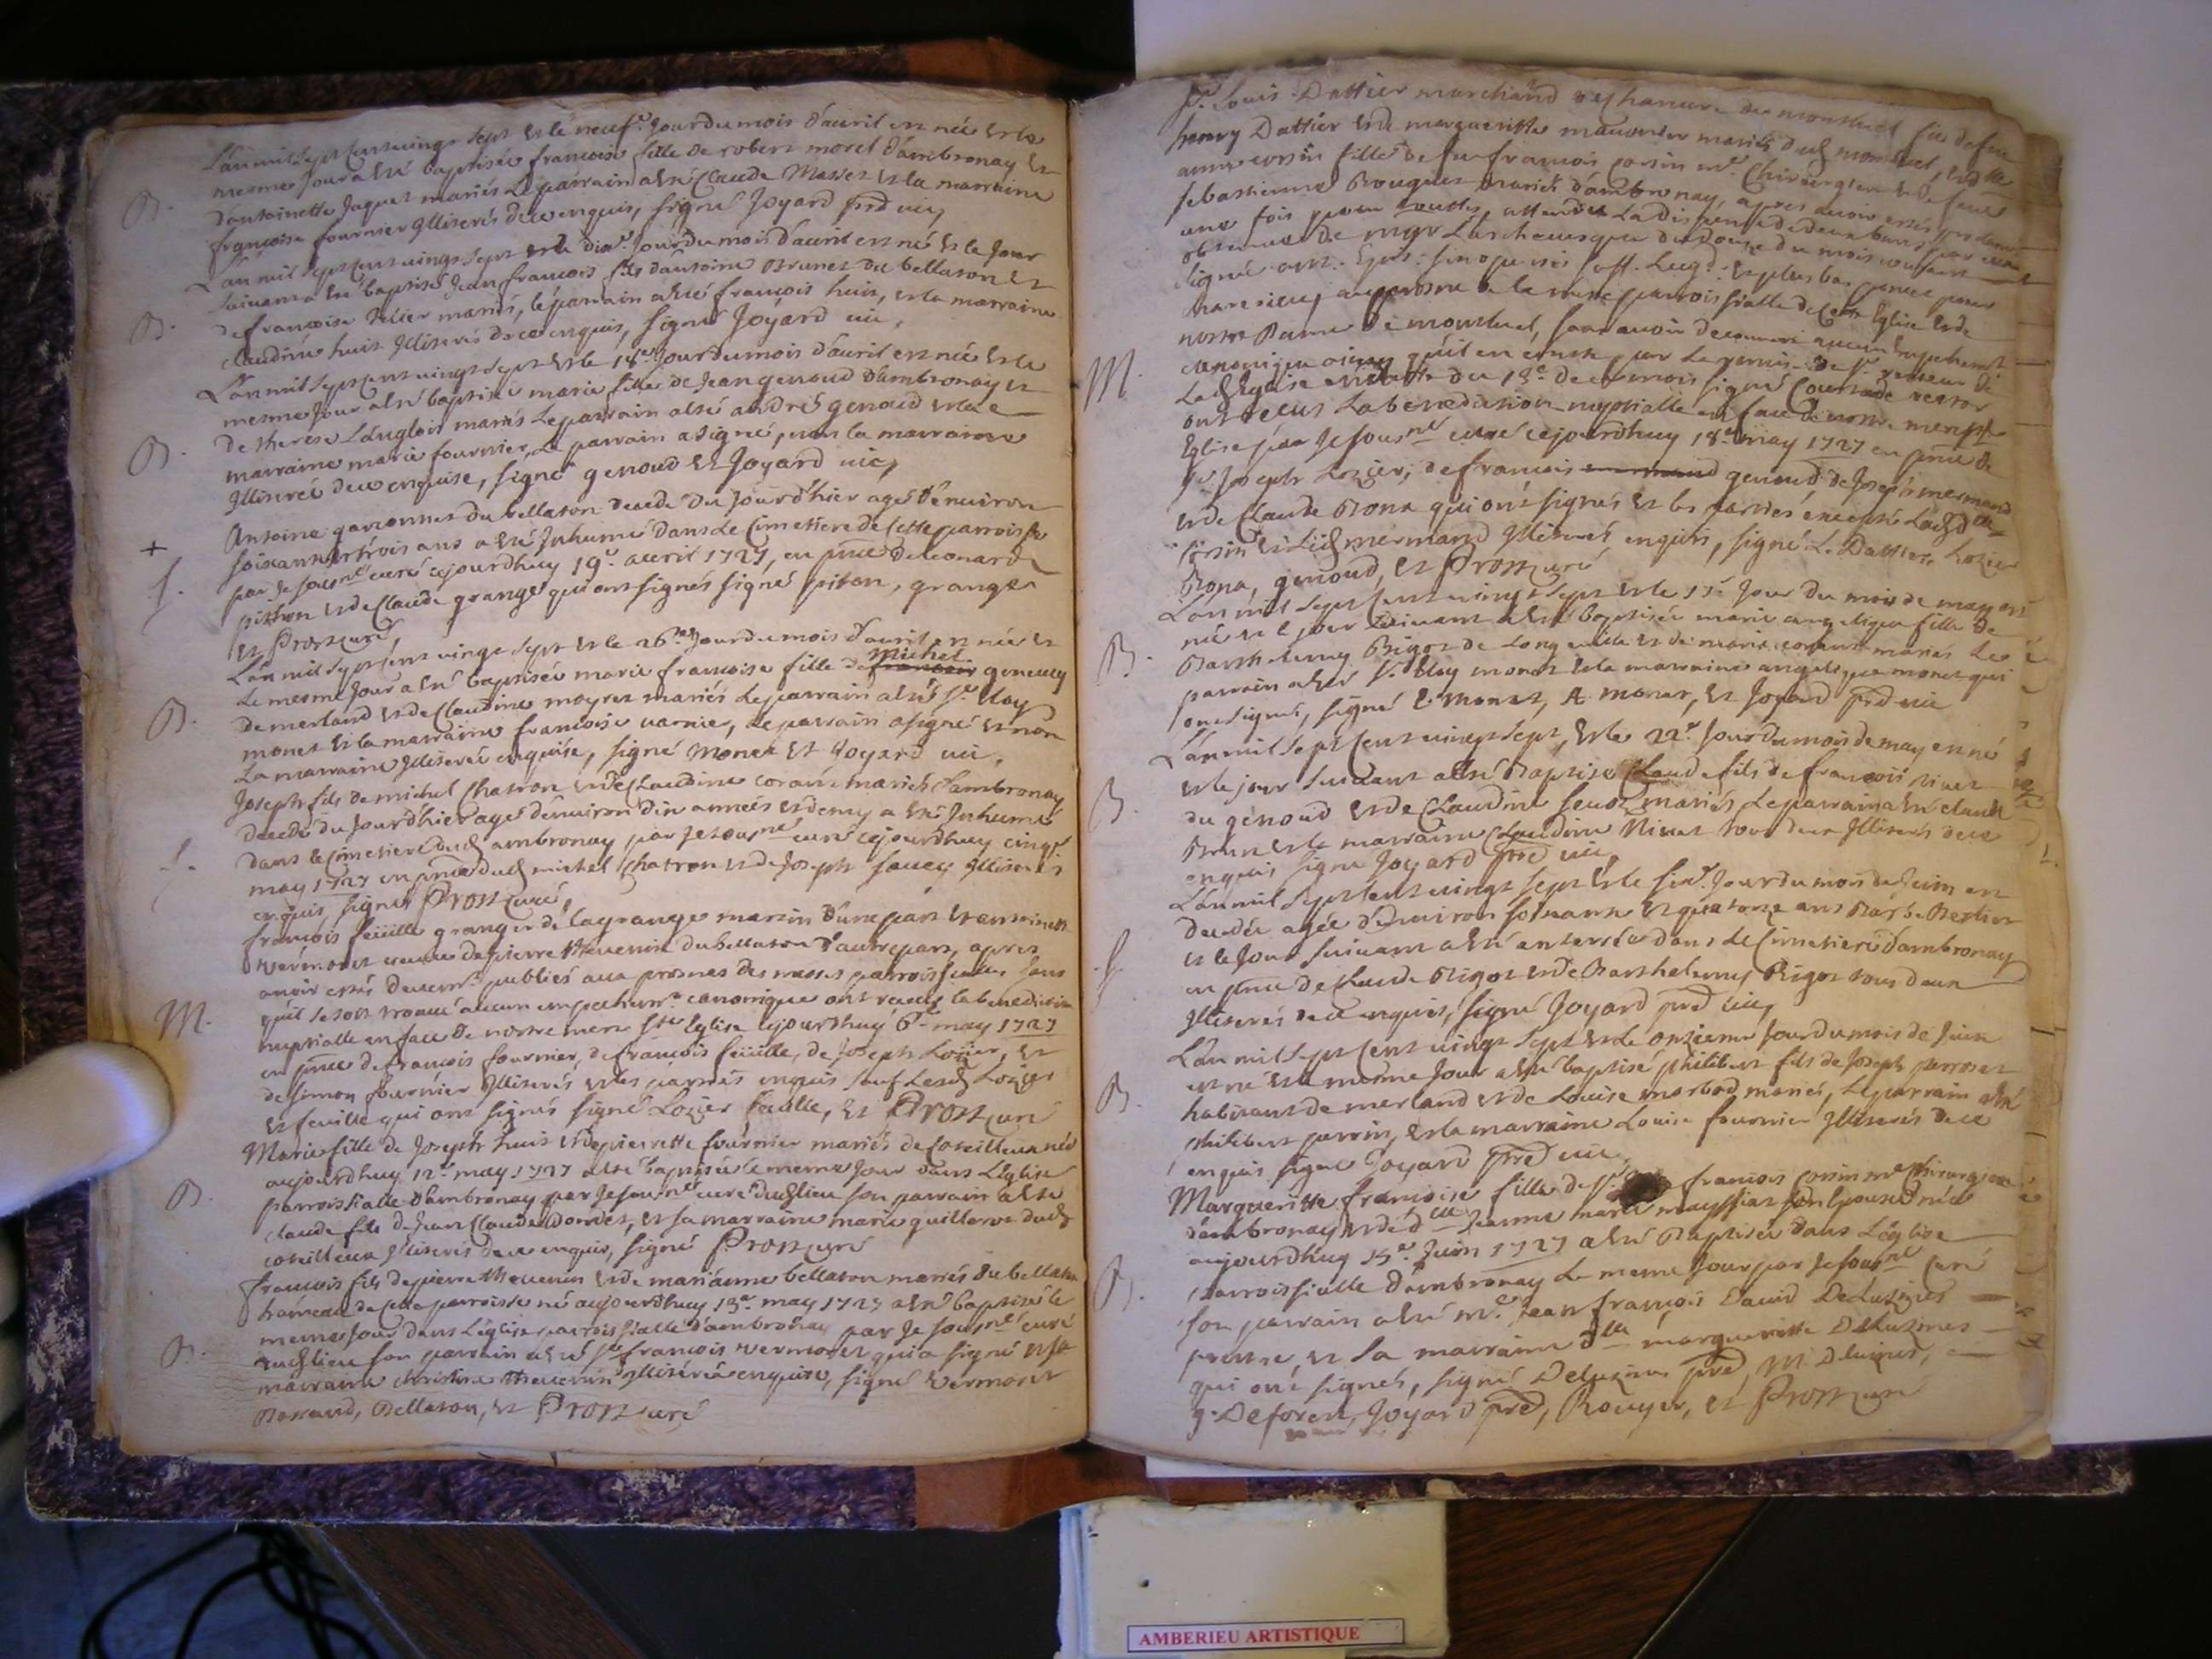 L'an mil sept cent vingt sept et le neuf.e jour du mois d'avril est née et le
mesme jour a esté baptisée francoise fille de robert morel d'ambronay et
B.
d'antoinette Jaquet mariés le parrain a esté Claude Mornet et la marraine
francoise fournier illiterés de ce enquis, signé Joyard prd vic,
L'an mil sept cent vingt sept et le dix.e jour du mois d'avril est né et le jour
suivant a esté baptisé Jean francois fils d'antoine Brunet du bellaton et
B.
de francoise mariés, le parrain a esté francois huit, et la marraine
claudine huit illiterés de ce enquis, signé Joyard vic,
L'an mil sept cent vingt sept et le 18.e jour du mois d'avril est née et le
mesme jour a esté baptisée marie fille de Jean genoud d'ambronay et
B.
de therese Langlois mariés le parrain a esté andré genoud et la
marraine marie fournier, le parrain a signé, non la marraine
illiterée de ce enquise, signé genoud et Joyard vic,
+
Antoine garconnet du bellaton decedé du Jourd'hier agé d'environ
soixante et trois ans a esté Inhumé dans le Cimetiere de cette parroisse
f.
par Je sousné curé cejourdhuy 19.e avril 1727, en pnce de leonard
pithon et de Claude grange qui ont signés signé piton, grange
et Prost curé,
L'an mil sept cent vingt sept et le 26.me jour du mois d'avril est née et
michel
le mesme jour a esté baptisée marie francoise fille de francois geneuey
B.
de merland et de Claudine mayret mariés le parrain a esté Sr. Eloy
monet et la marraine francoise varnier, le parrain a signé et non
la marraine illiterée enquise, signé Monet et Joyard vic,
Joseph fils de michel Chatron et de Claudine coran mariés d'ambronay
decedé du Jourd'hier agé d'environ dix années et demy a esté Inhumé
f.
dans le cimetiere dud ambronay par Je sousné curé cejourdhuy cinq.e
may 1727 en pnce dud michel Chatron et de Joseph Savey illiterés
enquis, signé Prost curé,
francois feüille granger de la grange martin d'une part et antoinette
Vermoret veuve de pierre thevenin du bellaton d'autre part, apres
avoir estés deuemt. publiés aux prosnes des messes parroissialles sans
M.
qu'il se soit trouvé aucun empechemt. canonique ont receus la benediction
nuptialle en face de nostre mere ste Eglise cejourdhuy 6.e may 1727
en pnce de francois fournier, de francois feüille, de Joseph Lozier, et
de simon fournier illiterés et les parties enquis sauf lesd Lozier
et feuille qui ont signés signé Lozier feuille, et Prost curé
Marie fille de Joseph huit et de pierrette fournier mariés de Coteilleux née
aujourdhuy 12.e may 1727 a esté baptisée le meme jour dans l'Eglise
B.
parroissialle d'ambronay par Je sousné curé dud lieu son parrain a esté
claude fils de Jean Claude dondet, et sa marraine marie guillermet dud
coteilleux illiterés de ce enquis, signé Prost curé
francois fils de pierre thevenin et de marianne bellaton mariés du bellaton
hameau de cette parroisse né aujourdhuy 13.e may 1727 a esté baptisé le
meme jour dans l'Eglise parroissialle d'ambronay par Je sousné curé
B.
dud lieu son parrain a esté Sr. francois vermoret qui a signé et sa
marraine christine thevenin illiterée enquise, signé vermoret
Bellaton, et Prost curé
Sr. Louis Dattier marchand de montluel fils de feu
henry Dattier et de margueritte mariés dud montluel, et dlle
anne corsin fille de feu francois corsin me. Chirurgien et de feue
sebastienne Rouguet mariés d'ambronay, apres avoir estés proclamés
une fois pour toutes, attendu la dispense de deux bans par eux
obtenue de mgr l'archevesque du douze du mois courant
signé ant. Epus: sinopensis suff. Lugd. et plus bas
au prosne de la messe parroissialle de cette Eglise et de
nostre Dame de montluel, sans avoir decouvert aucun empechemt
M.
canonique ainsy qu'il en conste par la remise de sr. recteur de
lad Eglise en datte du 13.e de ce mois signé Courtade rector
ont receus la benediction nuptialle en face de nostre mere ste
Eglise par Je sousné curé cejourdhuy 18.e may 1727 en pnce de
Sr. Joseph Lozier, de francois genoud, de Joseph mermand
et de Claude Bona qui ont signés et les parties excepté lad dlle
corsin et led mermand illiterés enquis, signé L. Dattier, Lozier
Bona, genoud, et Prost curé
L'an mil sept cent vingt sept et le jour du mois de may est
née et le jour suivant a esté baptisée marie angelique fille de
B.
Barthelemy Bigot de Longeville et de marie mariés le
parrain a esté Sr. Eloy monet et la marraine angelique monet qui
ont signés, signé E. Monet, A. monet, et Joyard prd vic
L'an mil sept cent vingt sept, et le 22.e jour du mois de may est né
et le jour suivant a esté Baptisé Claude fils de francois nivet
B.
du genoud et de Claudine mariés le parrain a esté claude
Brun et la marraine Claudine Nivet tous deux illiterés de ce
enquis signé Joyard prd vic,
L'an mil sept cent vingt sept et le six.e jour du mois de Juin est
decedée agée d'environ soixante et quatorze ans Barbe Berlier
f.
et le jour suivant a esté enterrée dans le cimetiere d'ambronay
en pnce de Claude Bigot et de Barthelemy Bigot tous deux
illiterés de ce enquis, signé Joyard prd vic,
L'an mil sept cent vingt sept et le onzieme jour du mois de Juin
est né et le mesme jour a esté baptisé philibert fils de Joseph perroset
B.
habitant de merland et de Louise morbod mariés, le parrain a esté
philibert perrin, et la marraine Louise fournier illiterés de ce
enquis signé Joyard prd vic,
Margueritte francoise fille de Sr. francois corsin me Chirurgien
d'ambronay et de dlle Jeanne marie mayssiat son Epouse née
aujourdhuy 15.e Juin 1727 a esté Baptisée dans l'Eglise
B.
parroissialle d'ambronay le meme jour par Je sousné curé
son parrain a esté mre. Jean francois David Deluzines
prestre, et sa marraine dlle margueritte Deluzines
qui ont signés, signé Deluzines prd, M. Deluzines,
g. Deforest, Joyard prd, Rouyer, et Prost curé
AMBERIEU ARTISTIQUE